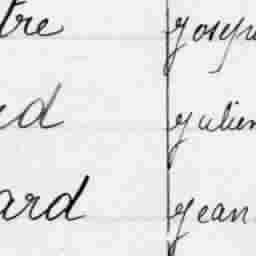 tre Joseph
rd Julien
ard Jean